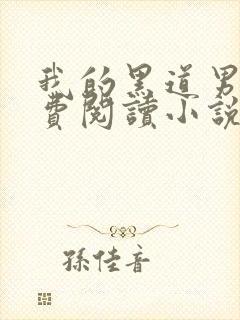 我的黑道男
費閱讀小說
孫佳音